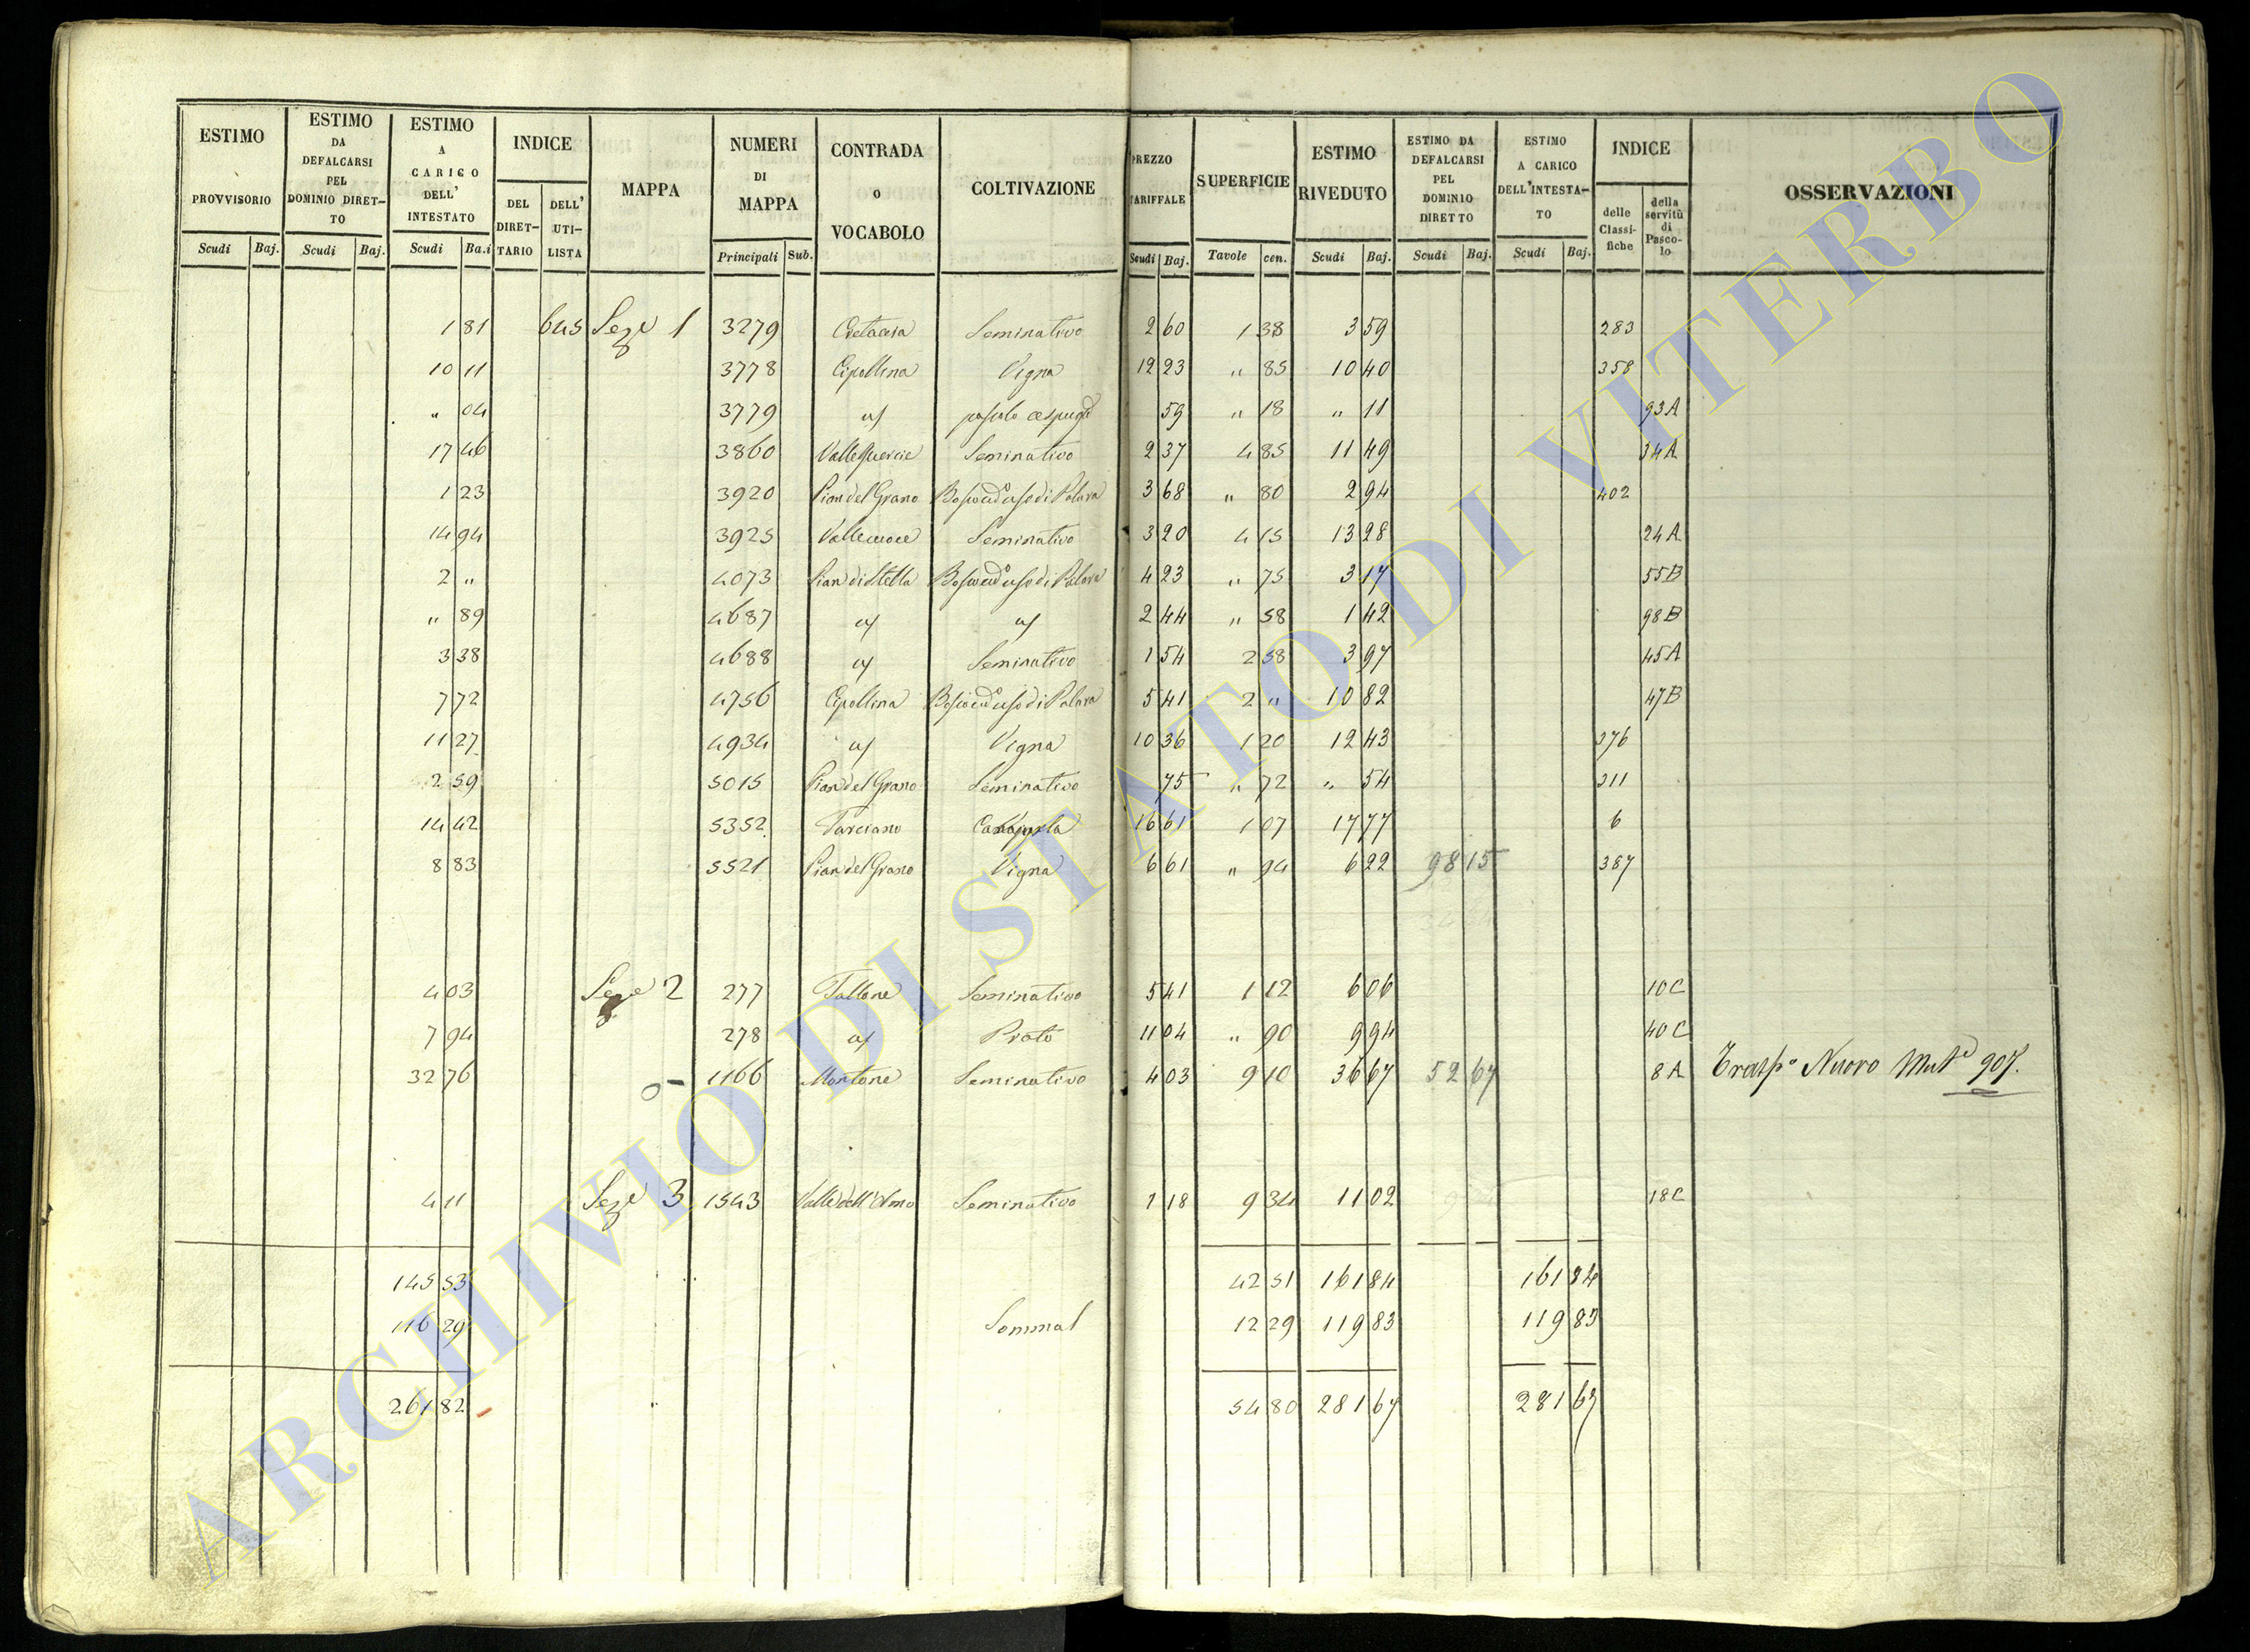 ESTIMO PROVVISORIO
ESTIMO DA DEFALCARSI PEL DOMINIO DIRET-TO
ESTIMO A CARICO DELL' INTESTATO
INDICE
DEL DIRET-TARIO
DELL' UTI-LISTA
MAPPA
NUMERI DI MAPPA
CONTRADA o VOCABOLO
COLTIVAZIONE
PREZZO TARIFFALE
SUPERFICIE
ESTIMO RIVEDUTO
ESTIMO DA DEFALCARSI PEL DOMINIO DIRETTO
ESTIMO A CARICO DELL'INTESTA-TO
INDICE
delle Classi-fiche
della servitù di Pasco-lo
OSSERVAZIONI
Scudi Baj. Scudi Baj. Scudi Ba.i Principali Sub. Scudi Baj. Tavole cen. Scudi Baj. Scudi Baj. Scudi Baj.
1 81 645 Seze 1 3279 Seminativo 2 60 1 38 3 59 283
10 11 3778 Cipollina Vigna 12 23 " 85 10 40 358
" 04 3779 pascolo 59 " 18 " 11 93A
17 46 3860 Valle Quercie Seminativo 2 37 4 85 11 49 34A
1 23 3920 Pian del Grano 3 68 " 80 2 94 402
14 94 3925 Seminativo 3 20 4 15 13 28 24A
2 " 4073 4 23 " 75 3 17 55B
" 89 4687 2 44 " 58 1 42 98B
3 38 4688 Seminativo 1 54 2 58 3 97 45A
7 72 4756 Cipollina 5 41 2 " 10 82 47B
11 27 4934 Vigna 10 36 1 20 12 43 376
2 59 5015 Pian del Grano Seminativo 75 " 72 " 54 211
14 42 5352 Tarciano 16 61 1 07 17 77 6
8 83 5521 Pian del Grano Vigna 6 61 " 94 6 22 98 15 387
4 03 Seze 2 277 Tallone Seminativo 5 41 1 12 6 06 10C
7 94 278 Prato 11 04 " 90 9 94 40C
32 76 1166 Montone Seminativo 4 03 9 10 36 67 52 67 8A Trasp° Nuovo Mut° 907.
4 11 Seze 3 1543 Valle dell'Olmo Seminativo 1 18 9 34 11 02 18C
145 53 42 51 161 84 161 84
116 29 Somma 12 29 119 83 119 83
261 82 54 80 281 67 281 67
ARCHIVIO DI STATO DI VITERBO